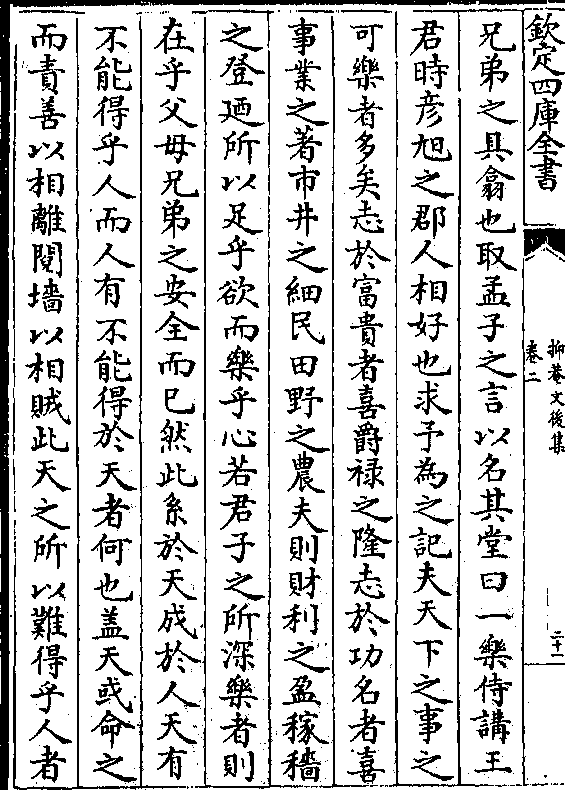 欽定四庫全書
抑菴文後集
卷二
二十一
兄弟之具翕也取孟子之言以名其堂曰一樂侍講王
君時彥旭之郡人相好也求予為之記夫天下之事之
可樂者多矣志於富貴者喜爵祿之隆志於功名者喜
事業之著市井之細民田野之農夫則財利之盈稼穡
之登廼所以足乎欲而樂乎心若君子之所深樂者則
在乎父母兄弟之安全而已然此系於天成於人天有
不能得乎人而人有不能得於天者何也盖天或命之
而責善以相離鬩墻以相賊此天之所以難得乎人者